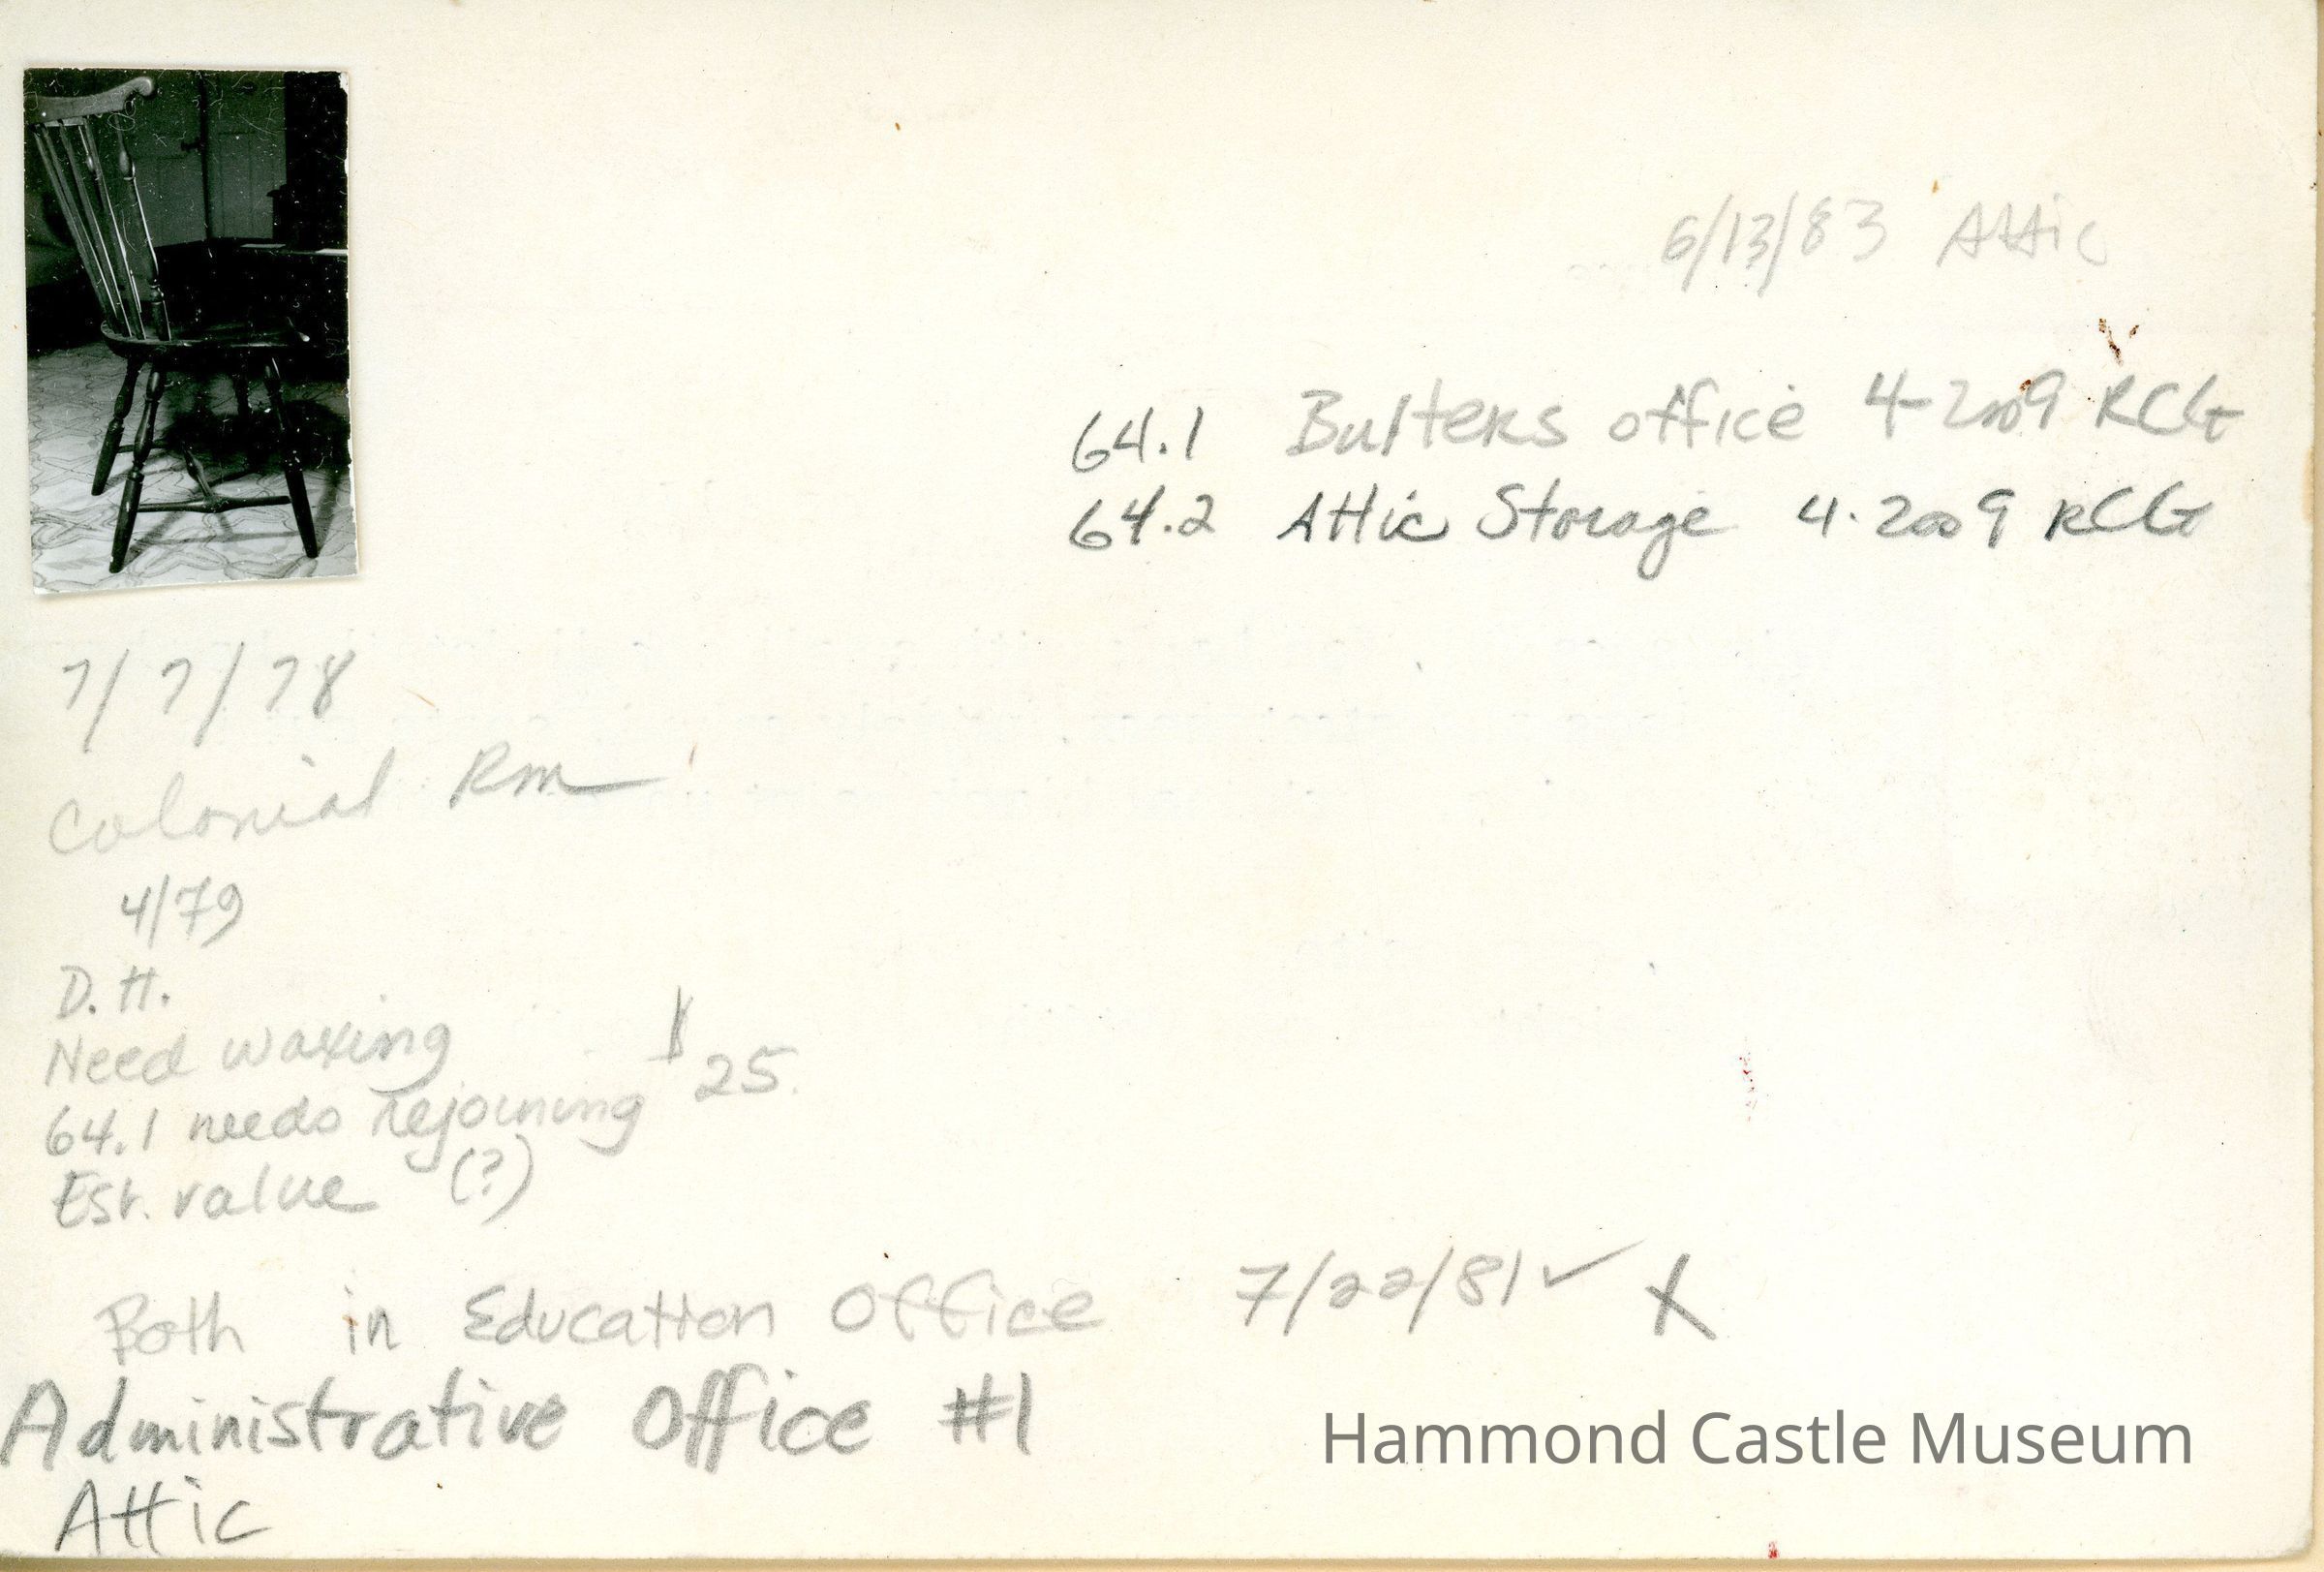 6/13/83 Attic
64.1 Bulters office 4-2009 RCG
64.2 Attic Storage 4.2009 RCG
7/7/78
Colonial Rm
4/79
D.H.
Need waxing
64.1 needs rejoining $25.
Est. value (?)
Both in Education Office 7/22/81 ✓ X
Administrative Office #1
Attic
Hammond Castle Museum